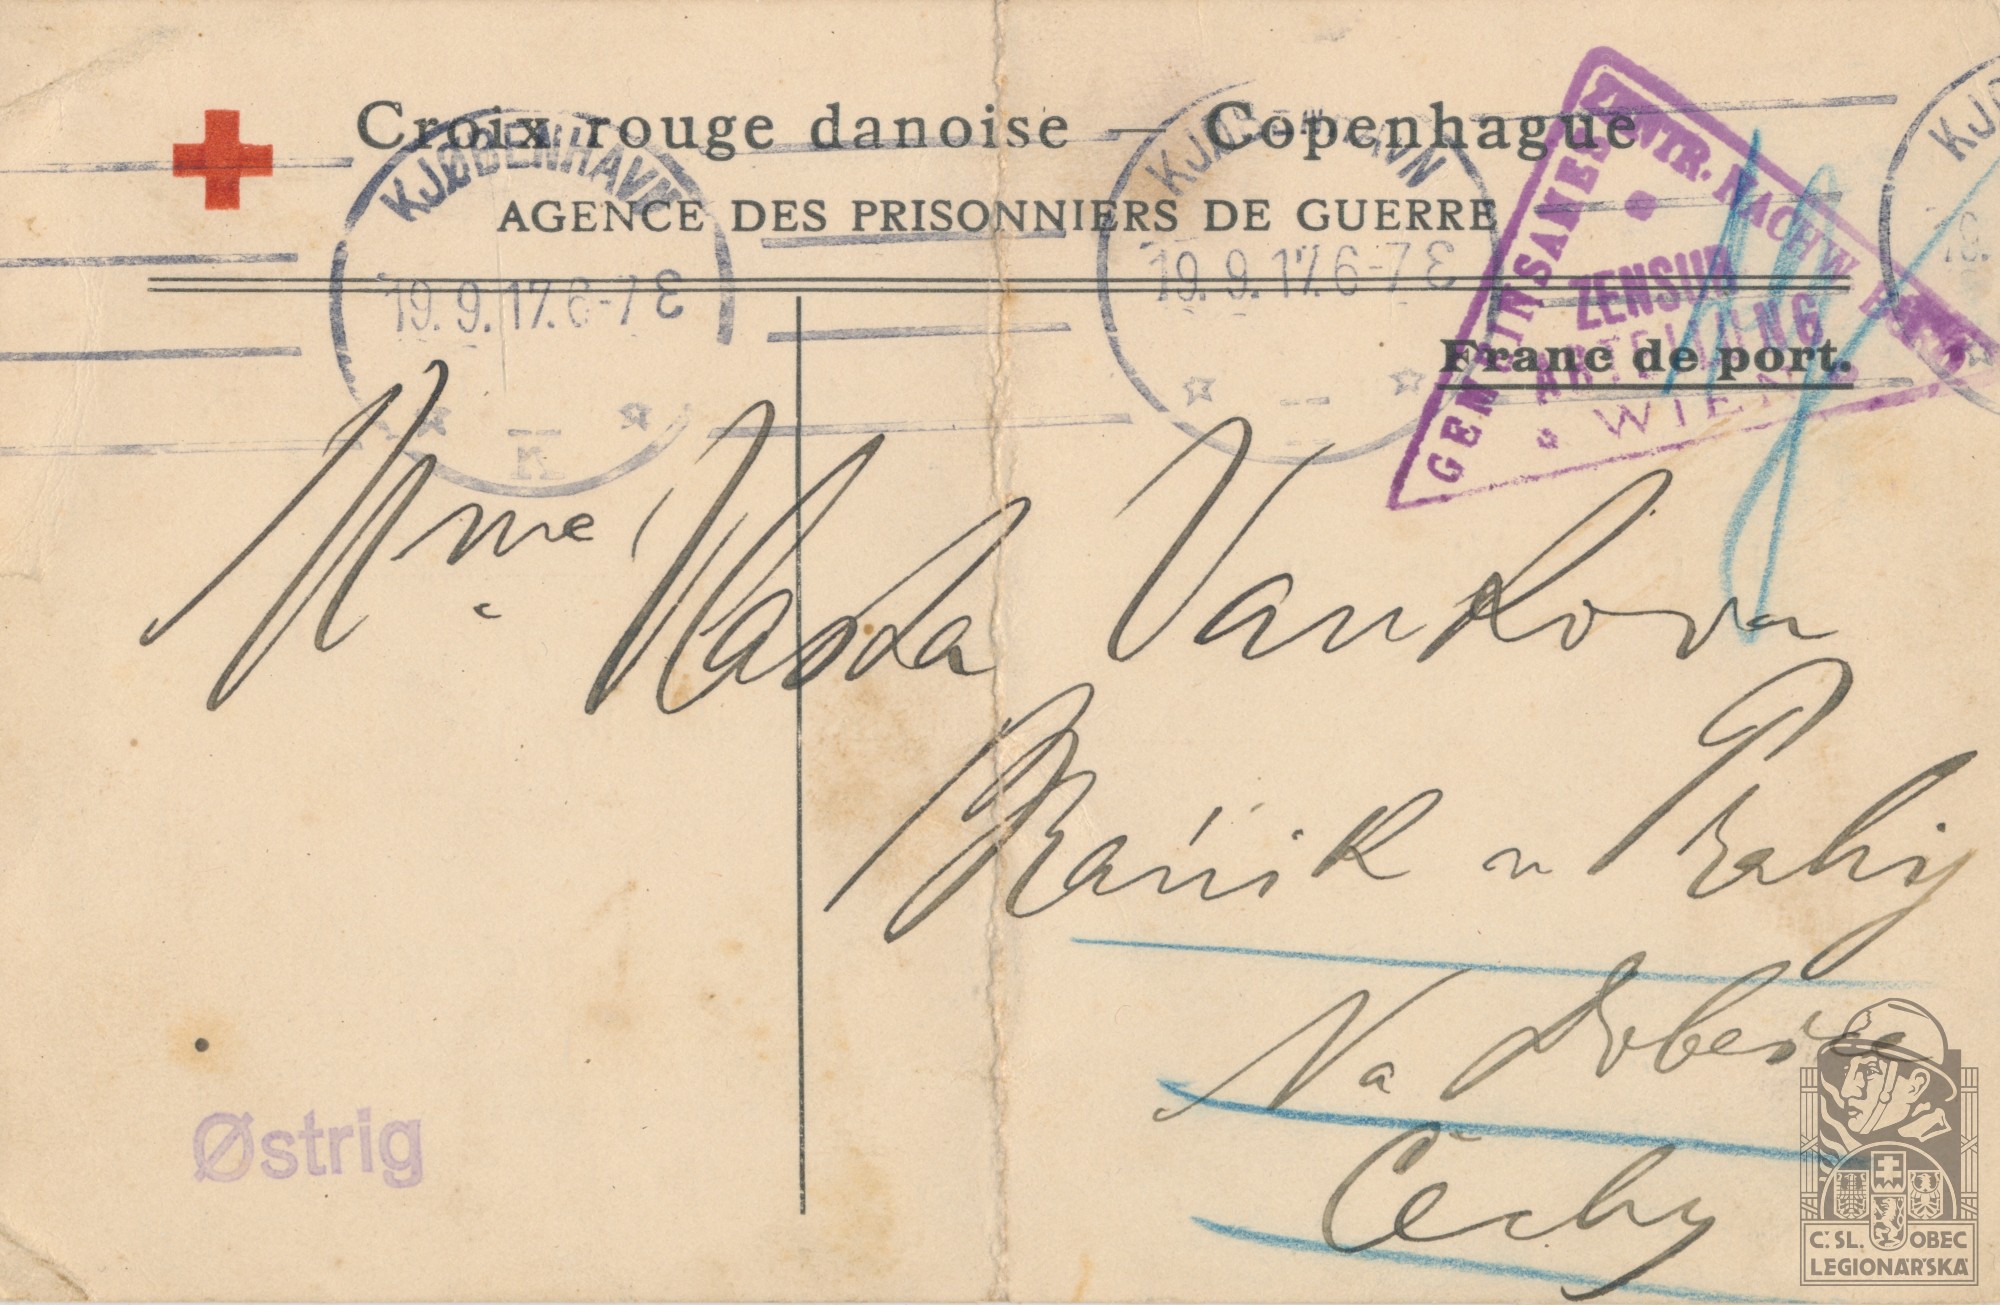 Croix rouge danoise — Copenhague
AGENCE DES PRISONNIERS DE GUERRE
KJØBENHAVN
19.9.17. 6-7 E
K
KJØBENHAVN
19.9.17. 6-7 E
KJØ
19.
GEMEINSAMES ZENTR. NACHW.
ZENSUR
ABTEILUNG
WIEN
Franc de port.
Mme Vlasta Vankova
Bráník u Prahy
Na Dobešce
Čechy
Østrig
Č.SL. OBEC
LEGIONÁŘSKÁ